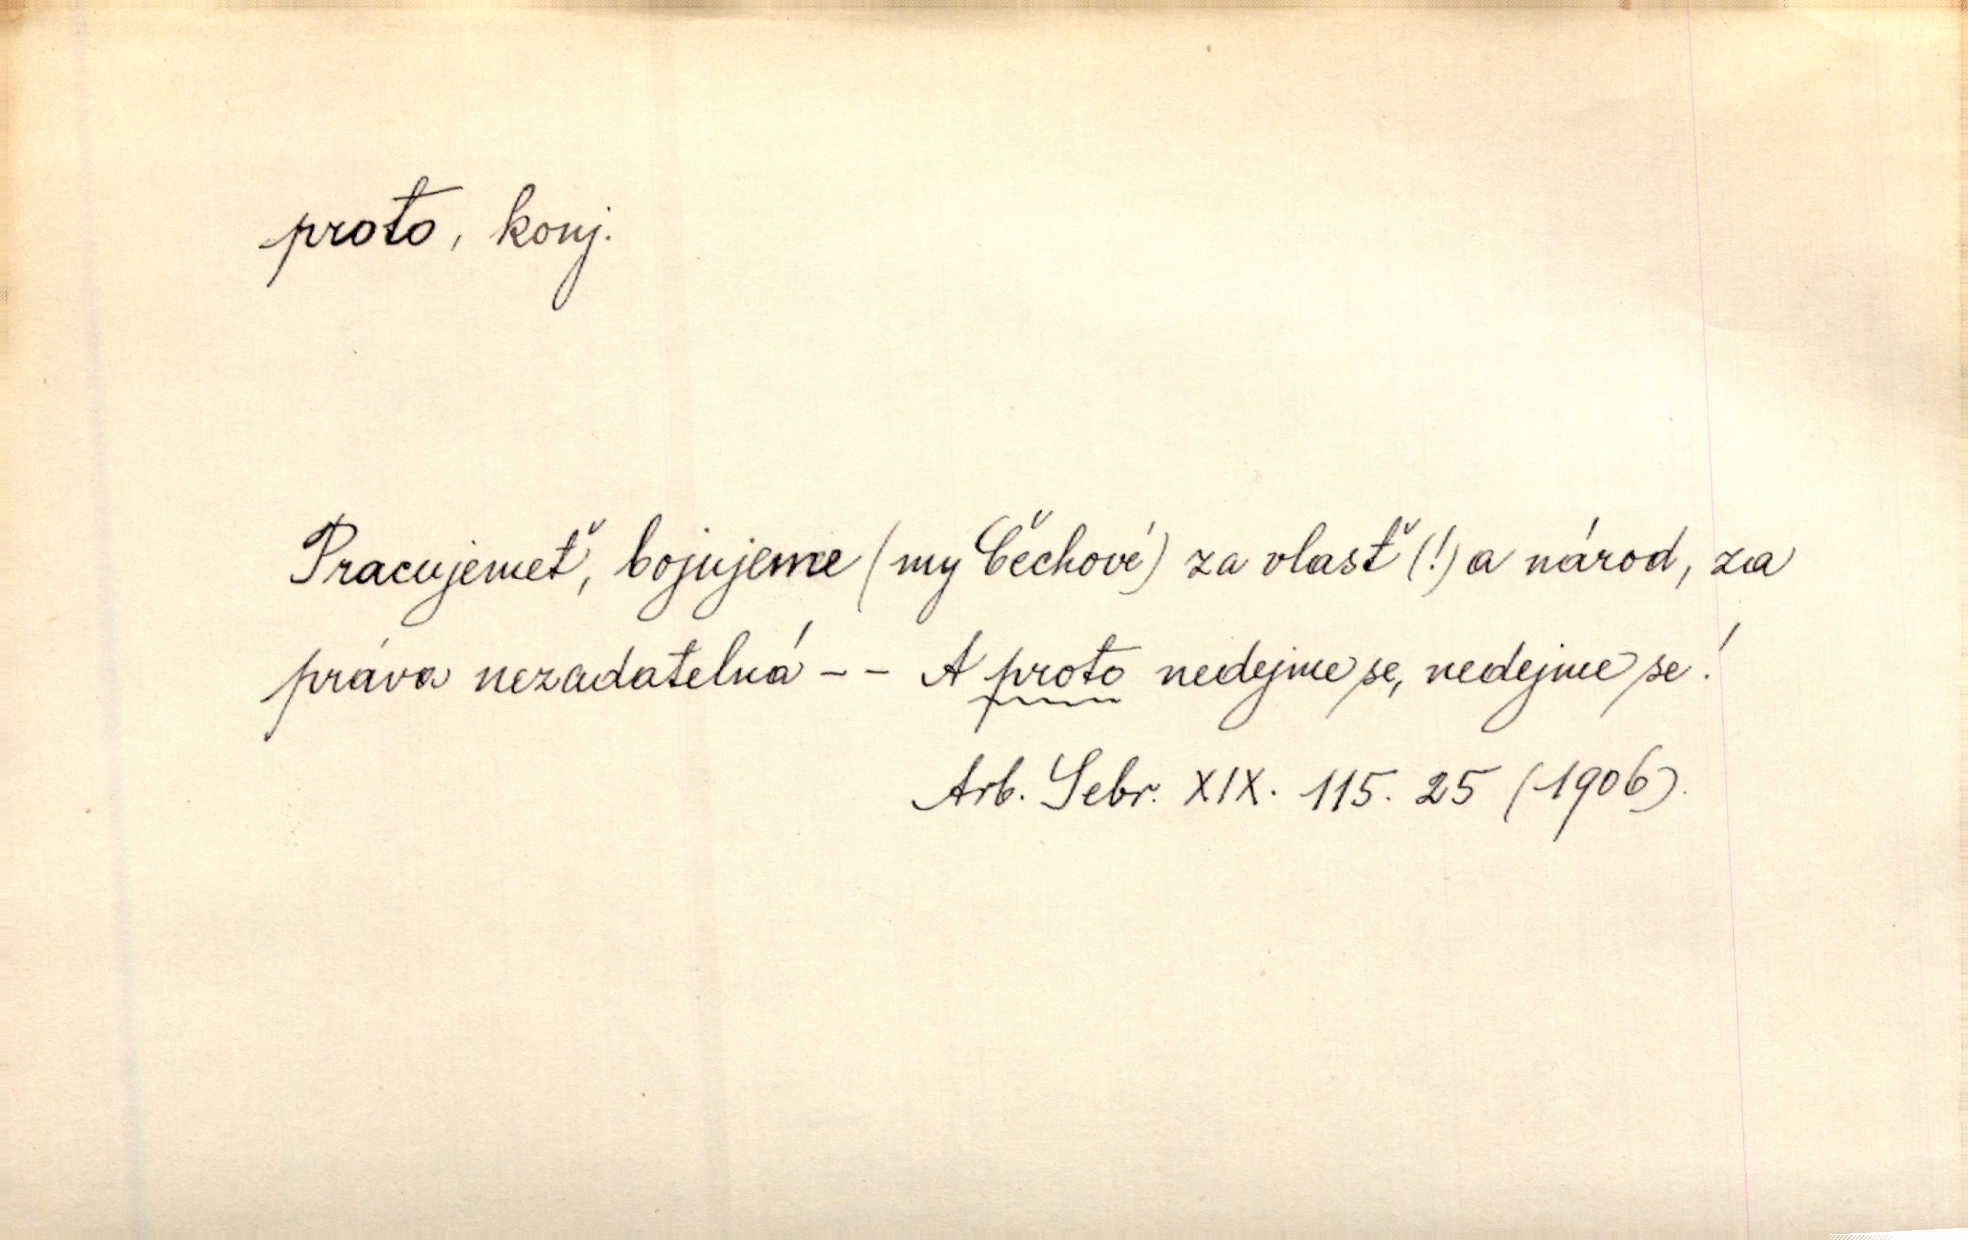 proto, konj.
Pracujemeť, bojujeme (my Čechové) za vlasť (!) a národ, za
práva nezadatelná - - A proto nedejme se, nedejme se!
Arb. Sebr. XIX. 115. 25 (1906).